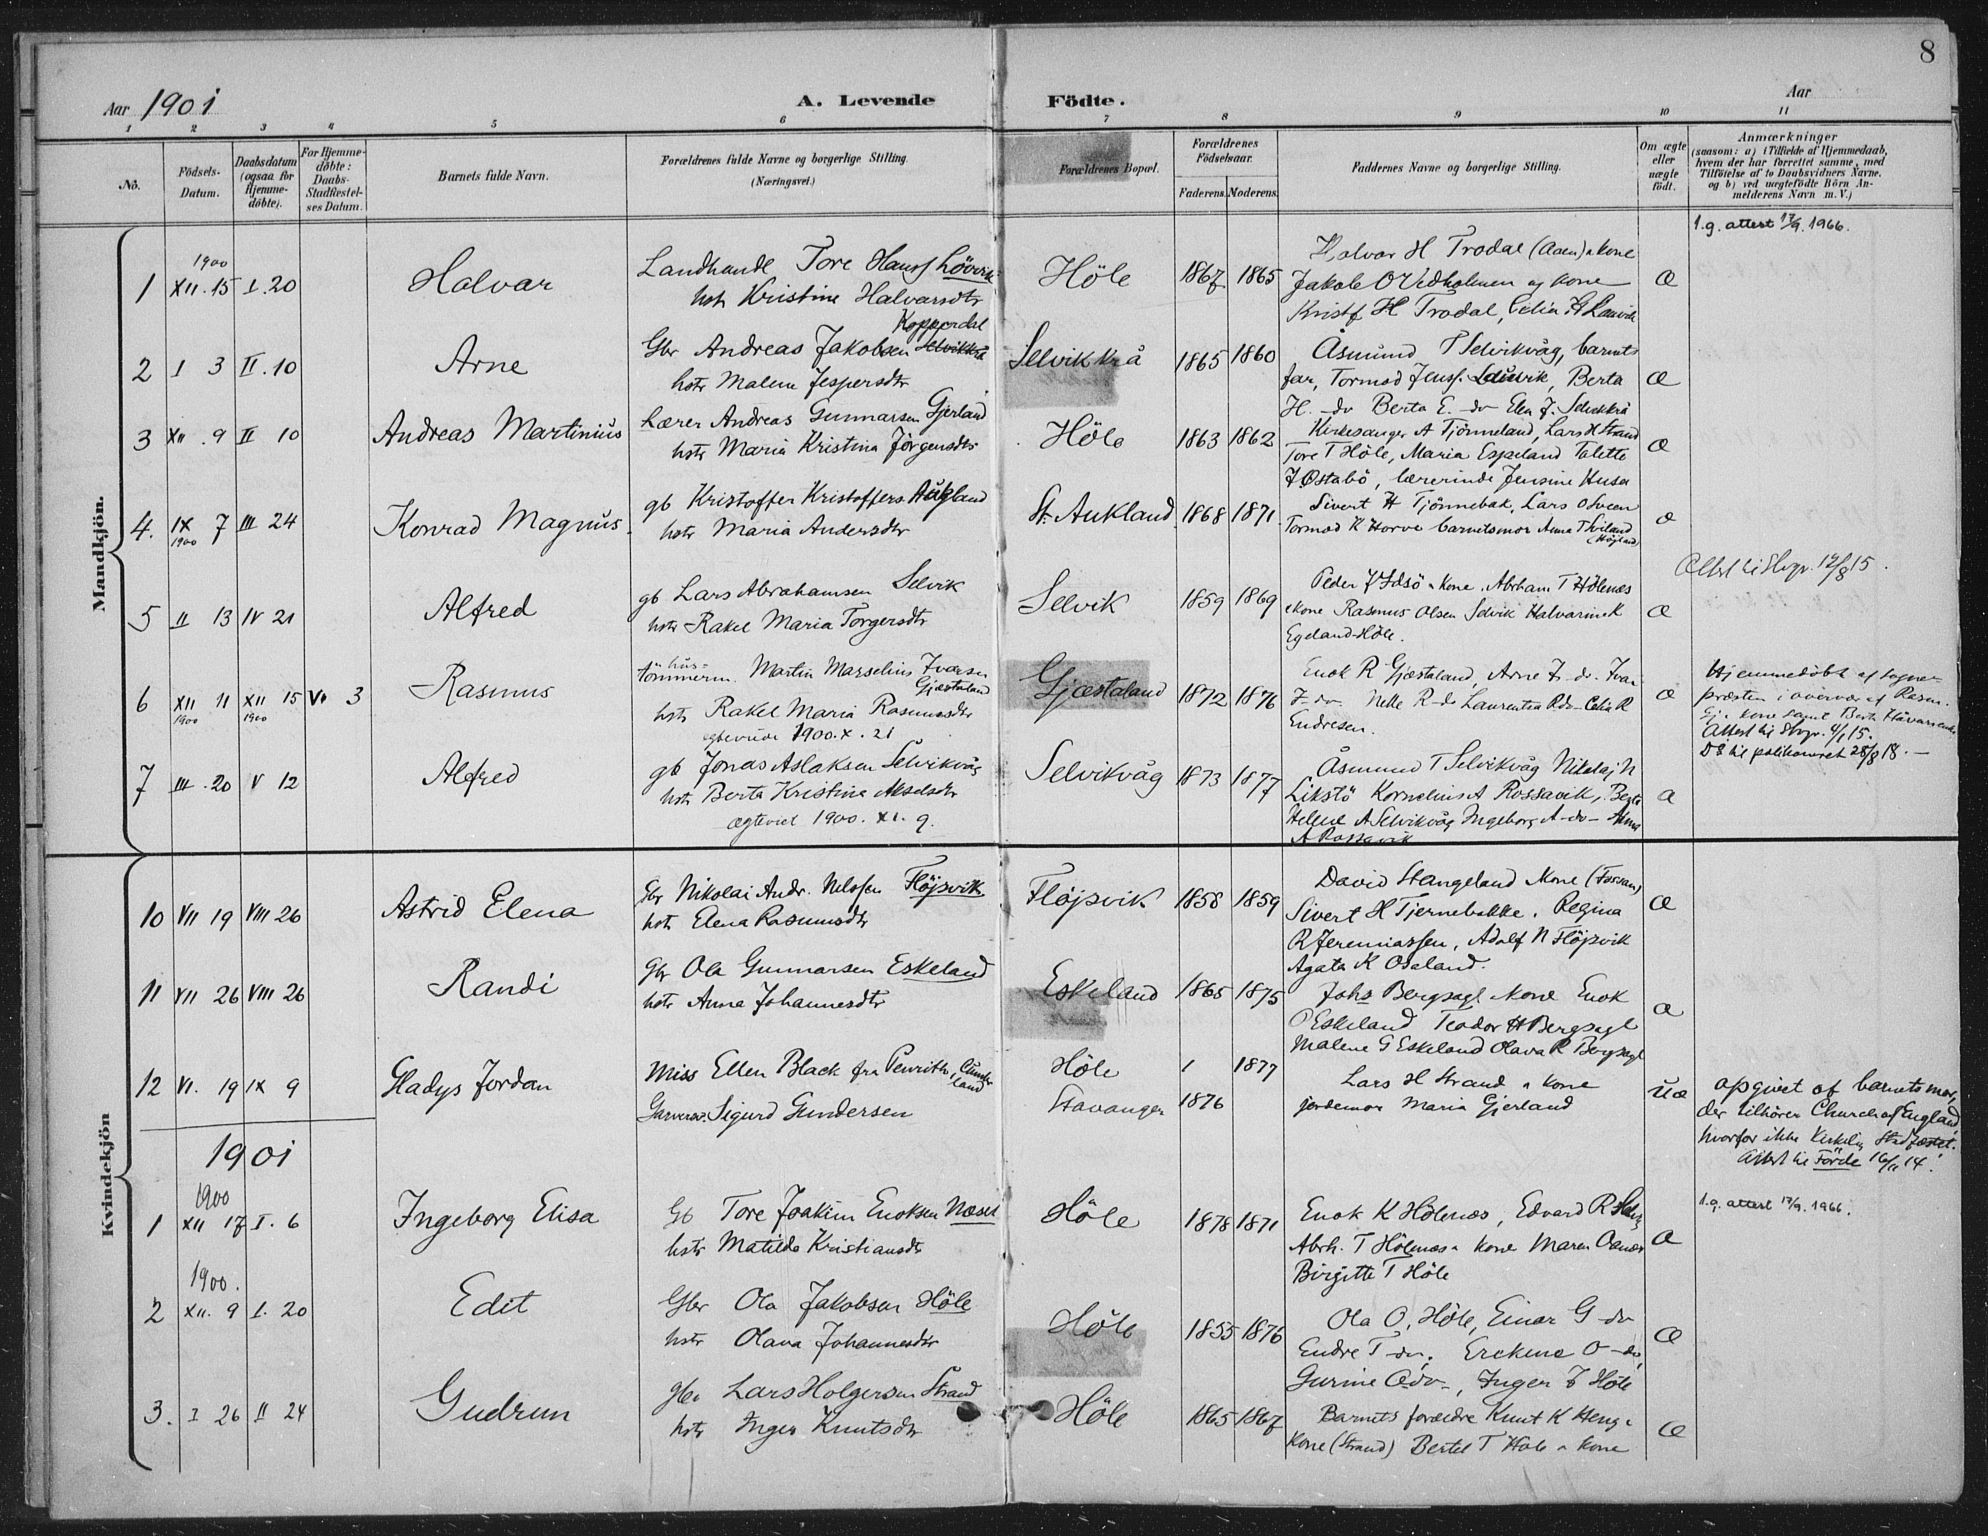 8
Aar 1901 A. Levende Födte. Aar
1 2 3 4 5 6 7 8 9 10 11
No.
Födsels-Datum.
Daabsdatum (ogsaa for Hjemme-döbte).
For Hjemme-döbte: Daabs-Stadfæstel-ses Datum.
Barnets fulde Navn.
Forældrenes fulde Navne og borgerlige Stilling.
(Næringsvei.)
Forældrenes Bopæl.
Forældrenes Födselsaar.
Faderens. Moderens.
Faddernes Navne og borgerlige Stilling.
Om ægte eller uægte födt.
Anmærkninger
(saasom: a) i Tilfælde af Hjemmedaab,
hvem der har forrettet samme, med
Tilföielse af to Daabsvidners Navne,
og b) ved uægtefödte Börn An-
melderens Navn m. V.)
Mandkjön.
1.g. attest 17/9. 1966.
1900
1 XII. 15 I. 20 Halvar
Landhandl Tore Hansf Lövvik
hstr Kristine Halvarsdtr
Höle 1867 1865
Halvar H Trodal (Aaen) & kone
Jakob O Vedholmen og kone
Kristf H Trodal, Celia H Lauvik
Æ
2 I 3 II. 10 Arne
Kopperdal
Gbr Andreas Jakobsen Selvikkrå
hstr Malene Jespersdtr
Selvikkrå 1865 1860
Åsmund T Selvikvåg, barnets
far, Tormod Jensf. Lauvik, Berta
H. -do Berta E. -do Elen J. Selvikkrå
Æ
3 XII. 9 II 10 Andreas Martinius
Lærer Andreas Gunnarsen Gjerland
hstr Maria Kristina Jörgensdtr
Höle 1863 1862
Kirkesanger A Tjönneland, Lars H Strand
Tore T Höle, Maria Espeland Talette
J Østabö, lærerinde Jensine Husa
Æ
4. IX 7 III 24 Konrad Magnus
1900
gb Kristoffer Kristoffers Aukland
hstr Maria Andersdtr
St. Aukland 1868 1871
Sivert H Tjönnebak, Lars O Sveen
Tormod K Horve barnetsmor Anna T Sviland
(Högland)
Æ
5 II 13 IV 21 Alfred
gb Lars Abrahamsen Selvik
hstr Rakel Maria Torgersdtr
Selvik 1859 1869
Peder J Idsö & kone, Abrham T Hölenæs
& kone Rasmus Olsen Selvik Halvarine K
Egeland-Höle.
Æ
Attest til Stvgr. 12/8 15.
6 XII 11 XII 15 VI 3 Rasmus
1900 1900
hus-
tömmerm. Martin Marselius Ivarsen
Gjæstaland
hstr Rakel Maria Rasmusdtr
egteviede 1900. X. 21
Gjæstaland 1872 1876
Enok R Gjæstaland, Arne I. -do- Ivar
I- do- Nelle R -do Laurentse R do- Celia R
Endresen.
Æ
Hjemmedöbt af sogne-
præsten i overvær af Rasm.
Gj. kone samt Berta Håvarsen
Attest til Stvgr. 4/1 15.
DS til politikamret 28/8 18. —
7 III. 20 V 12 Alfred
gb Jonas Aslaksen Selvikvåg
hstr Berta Kristine Akselsdtr
ægteviet 1900. XI. 9.
Selvikvåg 1873 1877
Åsmund T Selvikvåg Nikolaj N
Likstö Kornelius A Rossavik, Berta
Helene A Selvikvåg Ingeborg A -do- Anna
A Rossavik
Æ
Kvindekjön
10 VII 19 VIII 26 Astrid Elena
Gbr Nikolai Andr. Nilssen Flöjsvik
hstr Elena Rasmusdtr
Flöjsvik 1858 1859
David Stangeland & kone (Fossan)
Sivert H Tjernebakke. Regina
R Jeremiassen, Adolf N Flöjsvik
Agata K Oseland.
Æ
11 VII 26 VIII 26 Randi
Gbr Ola Gunnarsen Eskeland
hstr Anna Johannesdtr
Eskeland 1865 1875
Johs Bergsagl & kone Enok
O Eskeland Teodor H Bergsagl
Malene G Eskeland Olava R Bergsagl
Æ
12 VI. 19 IX 9 Gladys Jordan
Miss Ellen Black fra Penrith, Cumberland
Garversv. Sigurd Gundersen
Höle 1877
Stavanger 1876
Lars H Strand & kone
jordemor Maria Gjerland
uæ
opgivet af barnets mor,
der tilhörer Church of England,
hvorfor ikke kirkelig stadfæstet.
Attest til Förde 16/11 14.
1901
1900
1 XII 17 I. 6 Ingeborg Elisa
Gb Tore Joakim Enoksen Næset
hstr Matilde Kristiansdtr
Höle 1878 1871
Enok K Hölenæs, Edvard R
Abrh. T Hölenæs & kone Maren
Birgitte T Höle
Æ
1.g. attest 17/9. 1966.
1900.
2 XII. 9 I. 20 Edit
Gbr Ola Jakobsen Höle
hstr Olava Johannesdtr
Höle 1855 1876
Ola O. Höle, Einar G -do
Endre T -do, Erekine O -do,
Gurine O do-, Inger T Höle
Æ
3. I 26 II 24 Gudrun
gbr Lars Holgersen Strand
hstr Inger Knutsdtr
Höle 1865 1867
Barnets forældre Knut K Heng &
kone (Strand) Bertel T Hole & kone
Æ